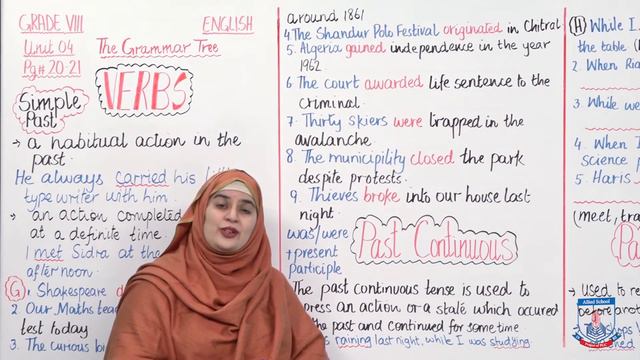 GRADE VIII
ENGLISH
Unit 04
The Grammar Tree
Pg# 20-21
VERBS
Simple
Past
→ a habitual action in the
past.
He always carried his
type writer with him.
→ an action completed
at a definite time.
I met Sidra at the
afternoon.
G 1. Shakespeare
2. Our Maths
test today
3. The curious
around 1861
4. The Shandur Polo Festival originated in Chitral.
5. Algeria gained independence in the year
1962
6 The court awarded life sentence to the
criminal.
7. Thirty skiers were trapped in the
avalanche
8. The municipility closed the park
despite protests.
9. Thieves broke into our house last
night.
was/were
+ present
participle
Past Continuous
The past continuous tense is used to
an action or a state which occured
the past and continued for some time.
raining last night, while I was studying.
H While I
the table
2. When
3. While we
4. When
Science
5. Haris
(meet,
used to
before
Allied School